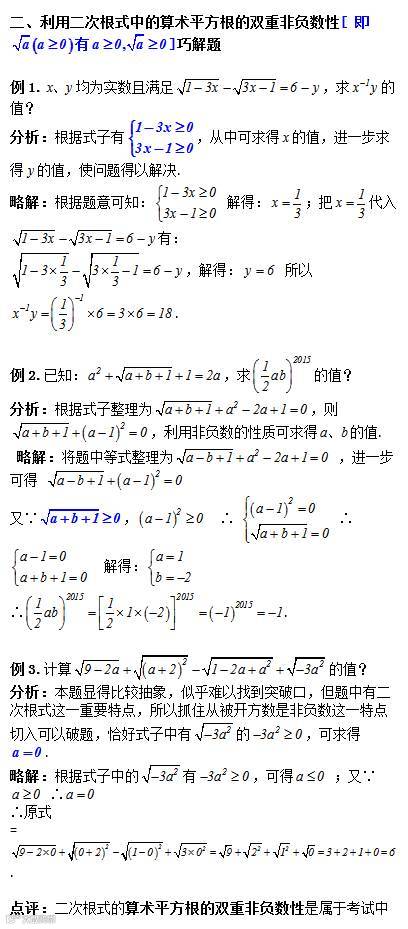 二、利用二次根式中的算术平方根的双重非负数性[ 即
√a(a≥0)有a≥0,√a≥0]巧解题
例1. x、y均为实数且满足√(1-3x)-√(3x-1)=6-y，求x⁻¹y的
值?
分析：根据式子有{1-3x≥0 3x-1≥0，从中可求得x的值，进一步求
得y的值，使问题得以解决.
略解：根据题意可知：{1-3x≥0 3x-1≥0 解得：x=1/3；把x=1/3代入
√(1-3x)-√(3x-1)=6-y有：
√(1-3×1/3)-√(3×1/3-1)=6-y，解得：y=6 所以
x⁻¹y=(1/3)⁻¹×6=3×6=18.
例2.已知：a²+√(a+b+1)+1=2a，求(1/2ab)²⁰¹⁵的值?
分析：根据式子整理为√(a+b+1)+a²-2a+1=0，则
√(a+b+1)+(a-1)²=0，利用非负数的性质可求得a、b的值.
略解：将题中等式整理为√(a-b+1)+a²-2a+1=0 ，进一步
可得 √(a-b+1)+(a-1)²=0
又∵√(a+b+1)≥0，(a-1)²≥0 ∴ {(a-1)²=0 √(a+b+1)=0 ∴
{a-1=0 a+b+1=0 解得：{a=1 b=-2
∴(1/2ab)²⁰¹⁵=[1/2×1×(-2)]²⁰¹⁵=(-1)²⁰¹⁵=-1.
例3.计算√(9-2a)+√((a+2)²)-√(1-2a+a²)+√(-3a²)的值?
分析：本题显得比较抽象，似乎难以找到突破口，但题中有二
次根式这一重要特点，所以抓住从被开方数是非负数这一特点
切入可以破题，恰好式子中有√(-3a²)的-3a²≥0，可求得
a=0.
略解：根据式子中的√(-3a²)有-3a²≥0，可得a≤0 ；又∵
a≥0 ∴a=0
∴原式
=
√(9-2×0)+√((0+2)²)-√((1-0)²)+√(3×0²)=√9+√2²+√1²+√0=3+2+1+0=6
.
点评：二次根式的算术平方根的双重非负数性是属于考试中